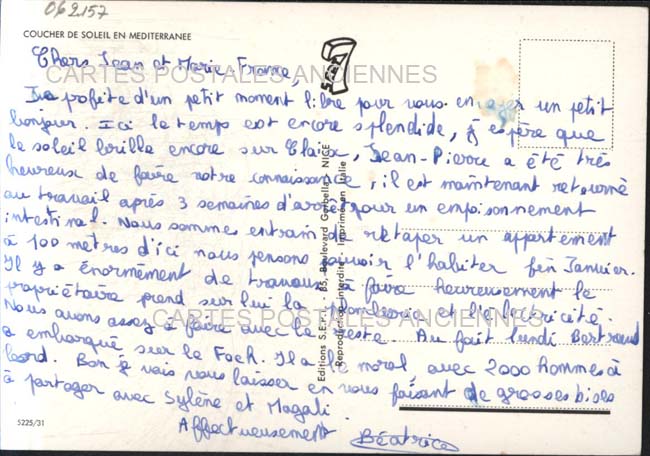 062157
COUCHER DE SOLEIL EN MEDITERRANEE
Chers Jean et Marie-France,
CARTES POSTALES ANCIENNES
Je profite d'un petit moment libre pour vous envoyer un petit
bonjour. Ici le temps est encore splendide, j'espère que
le soleil brille encore sur Claix, Jean-Pierre a été très
heureux de faire votre connaissance, il est maintenant retourné
au travail après 3 semaines d'arrêt pour un empoisonnement
intestinal. Nous sommes entrain de retaper un appartement
à 100 mètres d'ici nous pensons pouvoir l'habiter fin Janvier.
Il y a énormément de travaux à faire heureusement le
propriétaire prend sur lui la plomberie et l'électricité.
Nous avons assez à faire avec le reste. Au fait lundi Bertrand
CARTES POSTALES ANCIENNES
a embarqué sur le Foch. Il a le moral avec 2000 hommes à
bord. Bon je vais vous laisser en vous faisant de grosses bises
à partager avec Sylène et Magali.
Affectueusement Béatrice
5225/31
Editions S.E. 85, Boulevard Gorbella NICE
Reproduction interdite Imprimé en Italie